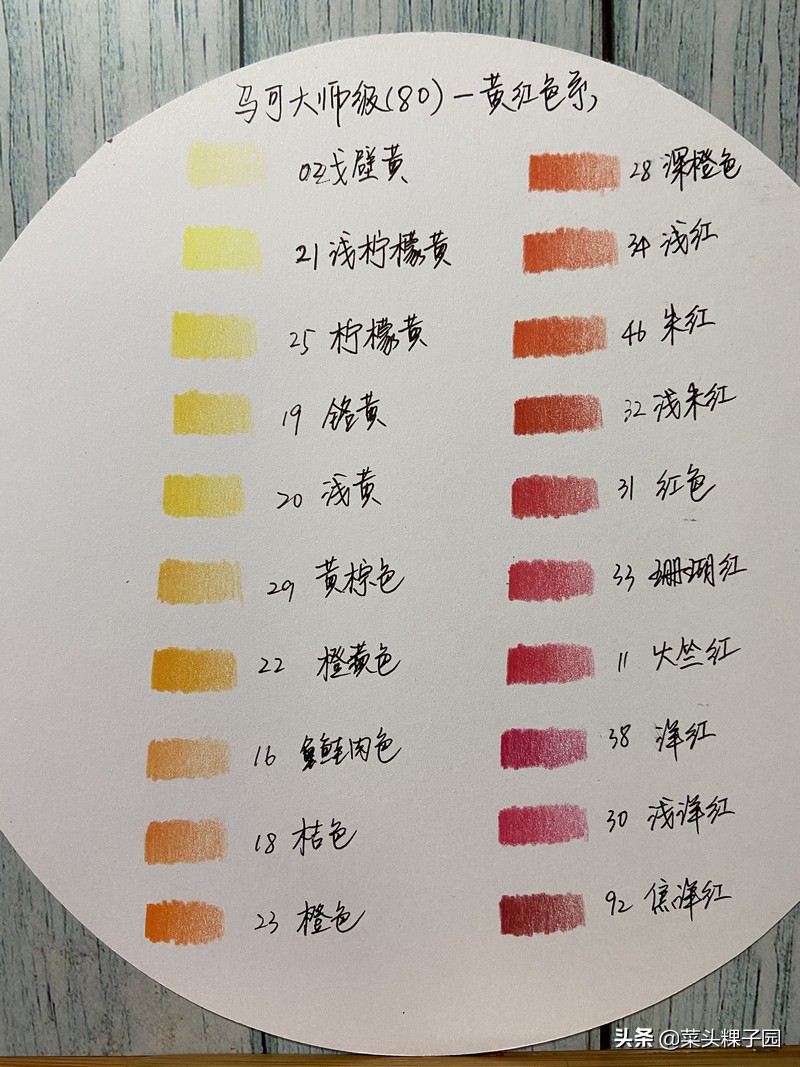 马可大师级(80)一黄红色系
02浅壁黄
21 浅柠檬黄
25 柠檬黄
19 铬黄
20 浅黄
29 黄棕色
22 橙黄色
16 鲑肉色
18 桔色
23 橙色
28 深橙色
34 浅红
46 朱红
32 浅朱红
31 红色
33 珊瑚红
11 大竺红
38 洋红
30 浅洋红
92 焦洋红
头条 @菜头粿子园